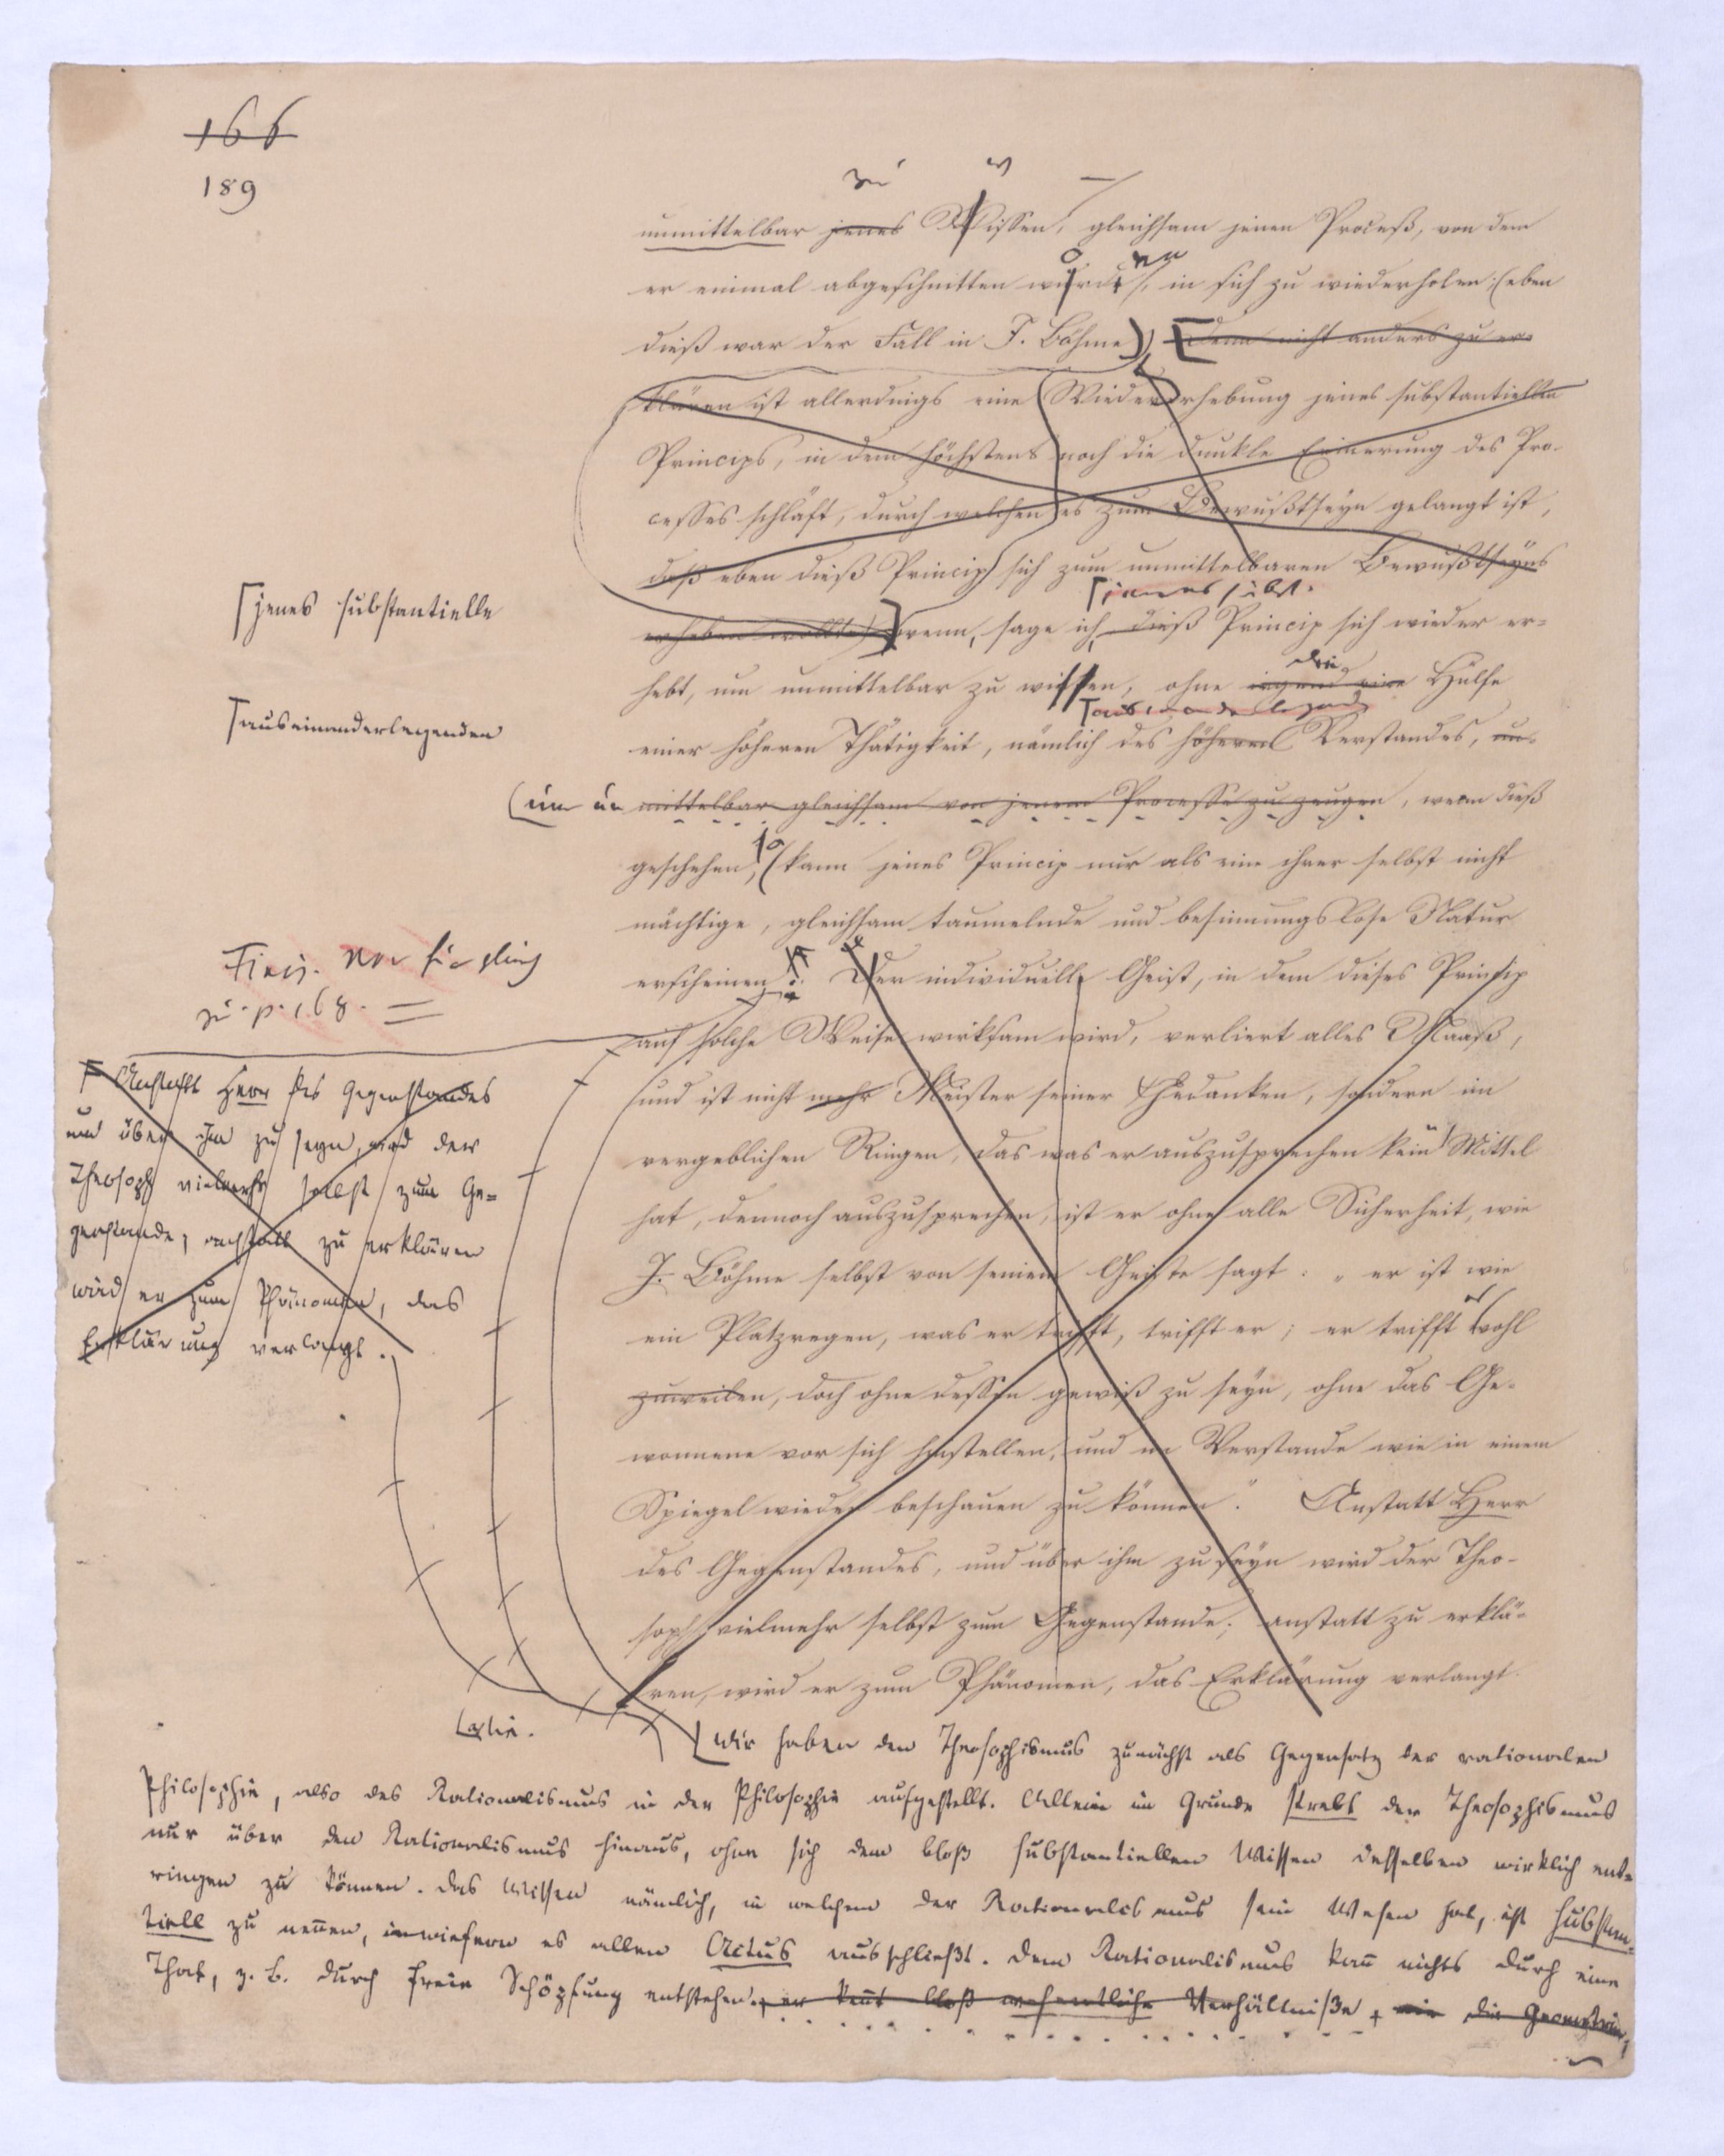 166
189
zu w
unmittelbar jenes Wissen, gleichsam jenen Proceß, von dem
er einmal abgeschnitten wurde, in sich zu wiederholen: (eben
dieß war der Fall in J. Böhme) denn nicht anders zu er-
klären ist allerdings eine Wiedererhebung jenes substantiellen
Princips, in dem höchstens noch die dunkle Erinerung des Pro-
cesses schläft, durch welchen es zum Bewußtseyn gelangt ist,
daß eben dieß Princip sich zum unmittelbaren Bewußtseyns
jenes subst.
erheben wollte) wenn, sage ich, dieß Princip sich wieder er-
die
hebt, um unmittelbar zu wissen, ohne irgend eine Hülfe
auseinanderlegend
einer höheren Thätigkeit, nämlich des höheren Verstandes, un-
mittelbar gleichsam von jenem Processe zu zeugen, wenn dieß
geschehen, so kann jenes Princip nur als eine ihrer selbst nicht
mächtige, gleichsam taumelnde und besinnungslose Natur
erscheinen. Der individuelle Geist, in dem dieses Princip
auf solche Weise wirksam wird, verliert alles Maaß,
und ist nicht mehr Meister seiner Gedanken, sondern im
vergeblichen Ringen, das was er auszusprechen kein Mittel
hat, dennoch auszusprechen, ist er ohne alle Sicherheit, wie
J. Böhme selbst von seinem Geiste sagt: „er ist wie
ein Platzregen, was er trifft, trifft er; er trifft wohl
zuweilen, doch ohne dessen gewiß zu seyn, ohne das Ge-
wonnene vor sich hinstellen, und im Verstande wie in einem
Spiegel wieder beschauen zu können". Anstatt Herr
des Gegenstandes, und über ihm zu seyn wird der Theo-
soph vielmehr selbst zum Gegenstande; anstatt zu erklä-
ren, wird er zum Phänomen, das Erklärung verlangt.
jenes substantielle
auseinanderlegenden
(um un
zu p. 168.
Anstatt Herr des Gegenstandes
und über ihm zu seyn, wird der
Theosoph vielmehr selbst zum Ge-
genstande; anstatt zu erklären
wird er zum Phänomen, das
Erklärung verlangt.
Wir haben den Theosophismus zunächst als Gegensatz der rationalen
Philosophie, also des Rationalismus in der Philosophie aufgestellt. Allein im Grunde strebt der Theosophismus
nur über den Rationalismus hinaus, ohne sich dem bloß substantiellen Wissen desselben wirklich ent-
ringen zu können. Das Wissen nämlich, in welchem der Rationalismus sein Wesen hat, ist substan-
tiell zu nennen, inwiefern es allen Actus ausschließt. Dem Rationalismus kan̄ nichts durch eine
That, z. B. durch freie Schöpfung entstehen, er ken̄t bloß wesentliche Verhältniße, wie die Geometrie,